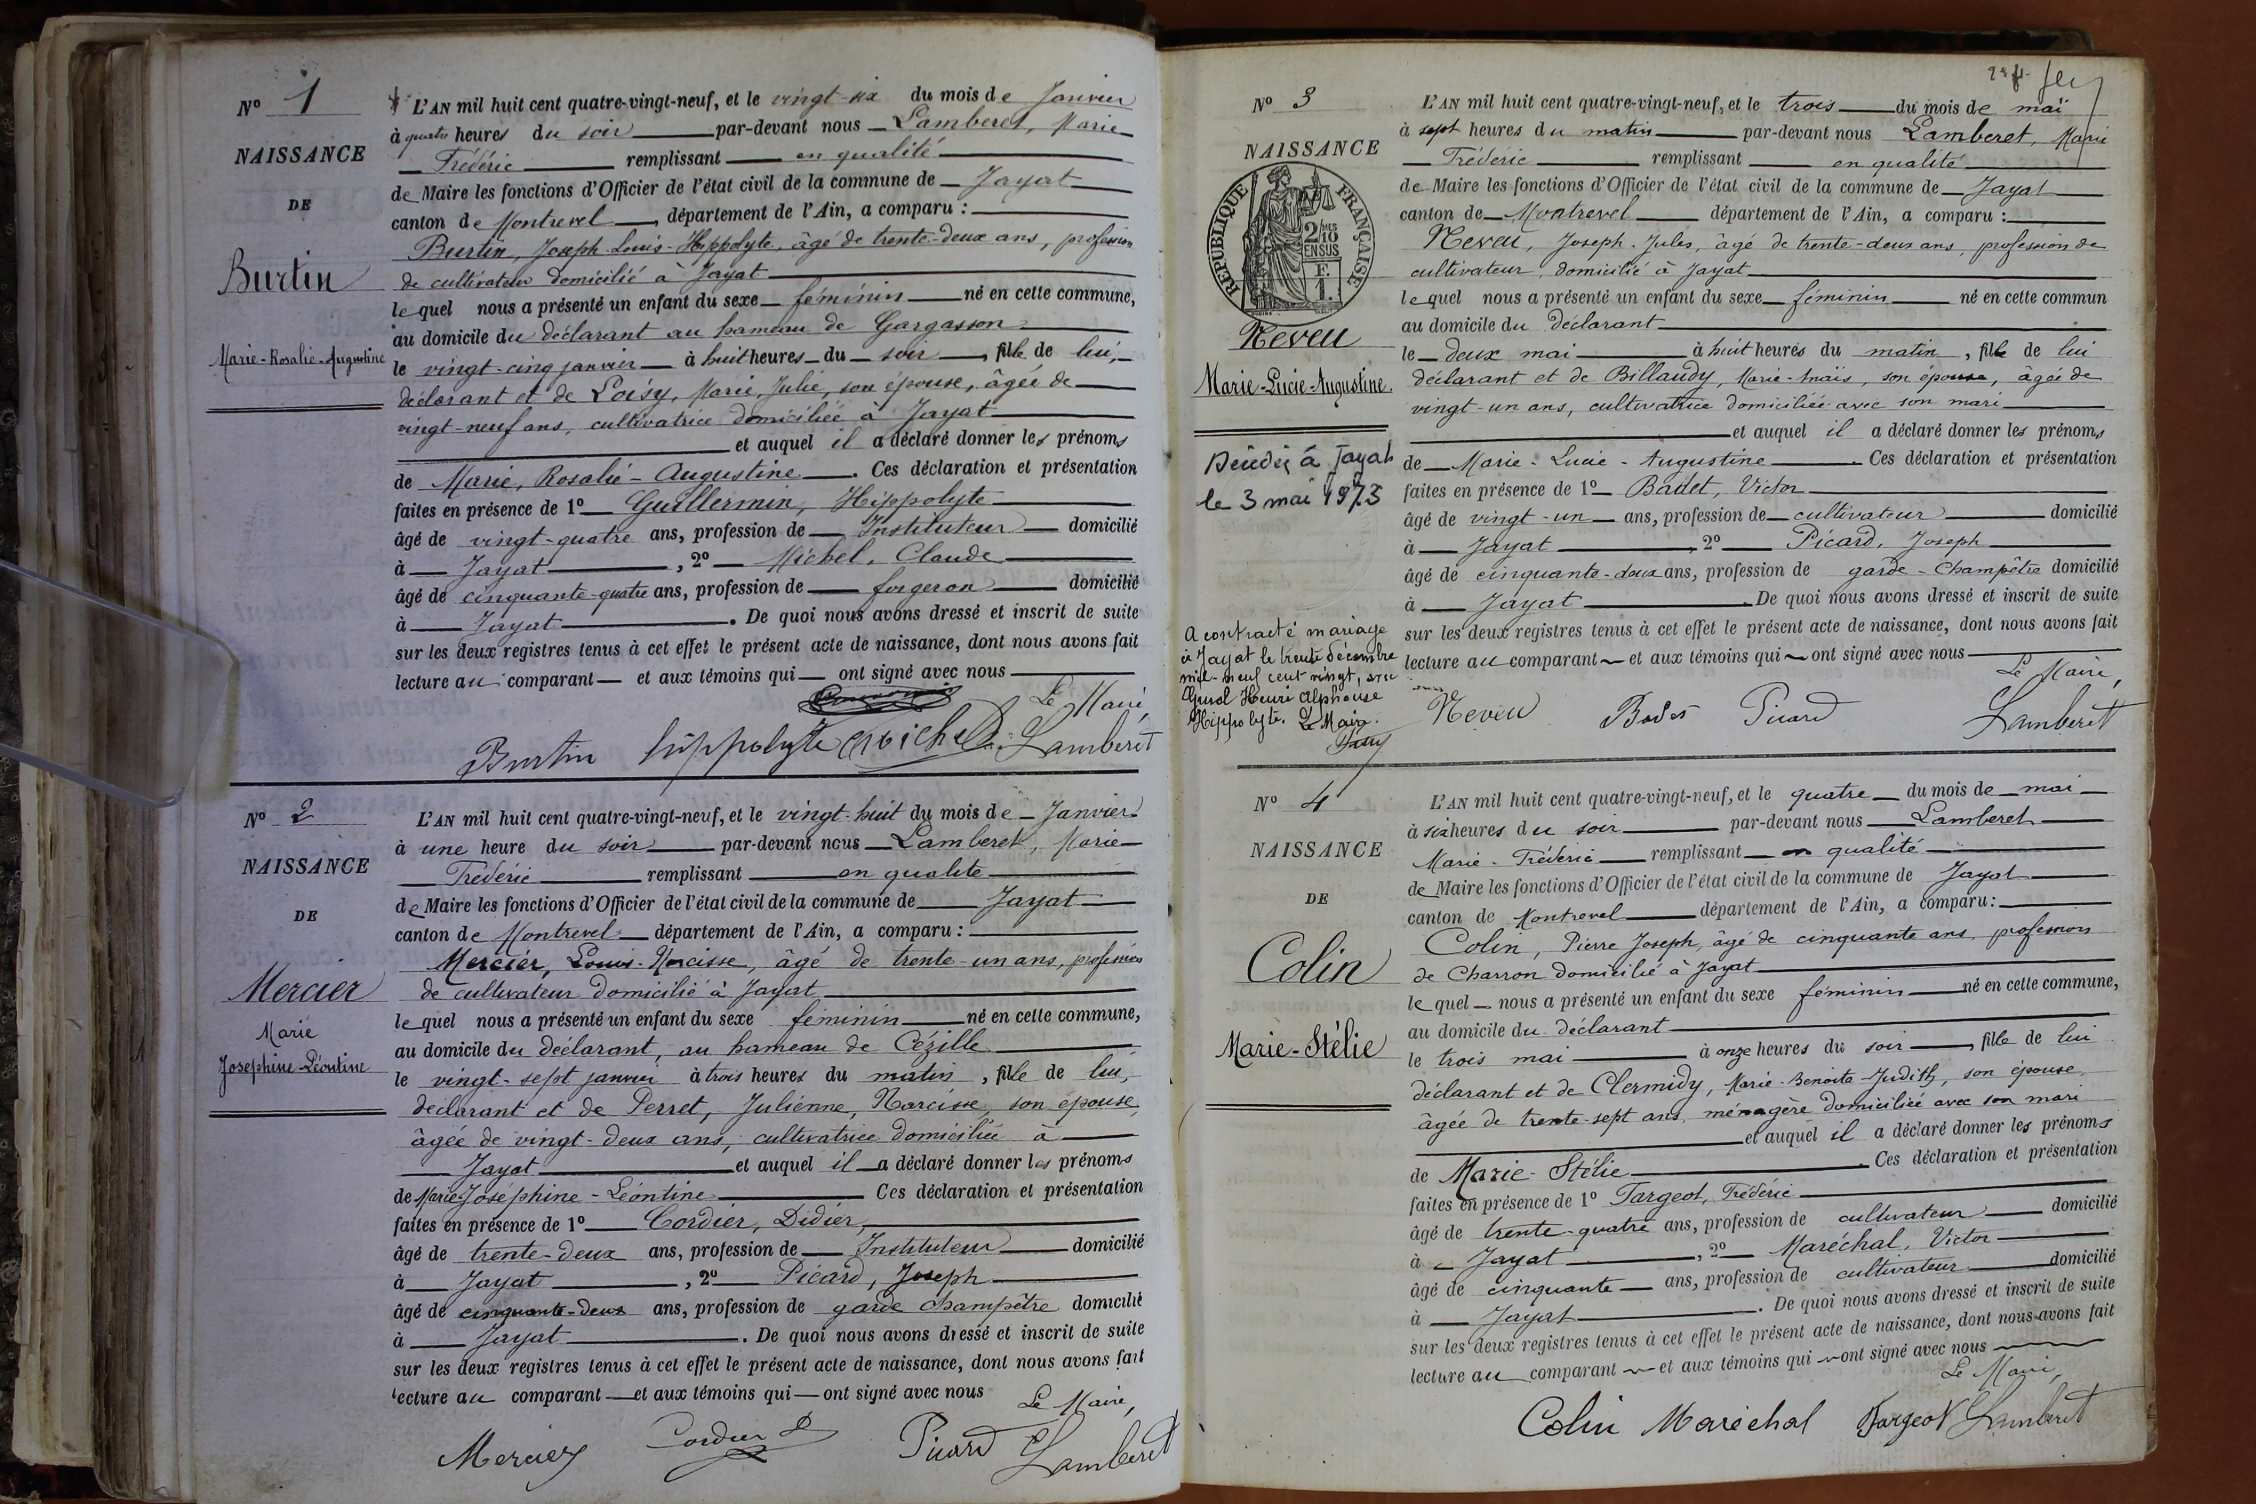 Nº 1
NAISSANCE
DE
Burtin
Marie-Rosalie-Augustine
L'AN mil huit cent quatre-vingt-neuf, et le vingt-six du mois de Janvier
à quatre heures du soir par-devant nous Lamberet, Marie
Frédéric remplissant en qualité
de Maire les fonctions d'Officier de l'état civil de la commune de Jayat
canton de Montrevel, département de l'Ain, a comparu :
Burtin, Joseph-Louis-Hippolyte, âgé de trente-deux ans, profession
de cultivateur domicilié à Jayat
lequel nous a présenté un enfant du sexe féminin né en cette commune,
au domicile du déclarant au hameau de Gargasson
le vingt-cinq janvier à huit heures du soir, fille de lui,
déclarant et de Loisy, Marie, Julie, son épouse, âgée de
vingt-neuf ans, cultivatrice domiciliée à Jayat
et auquel il a déclaré donner les prénoms
de Marie, Rosalie-Augustine. Ces déclaration et présentation
faites en présence de 1º Guillermin, Hippolyte
âgé de vingt-quatre ans, profession de Instituteur domicilié
à Jayat, 2º Michel, Claude
âgé de cinquante-quatre ans, profession de forgeron domicilié
à Jayat. De quoi nous avons dressé et inscrit de suite
sur les deux registres tenus à cet effet le présent acte de naissance, dont nous avons fait
lecture au comparant et aux témoins qui ont signé avec nous
Le Maire,
Burtin hippolyte michel Lamberet
Nº 2
NAISSANCE
DE
Mercier
Marie
Josephine-Léontine
L'AN mil huit cent quatre-vingt-neuf, et le vingt-huit du mois de Janvier
à une heure du soir par-devant nous Lamberet, Marie
Frédéric remplissant en qualité
de Maire les fonctions d'Officier de l'état civil de la commune de Jayat
canton de Montrevel département de l'Ain, a comparu :
Mercier, Louis-Narcisse, âgé de trente-un ans, profession
de cultivateur domicilié à Jayat
lequel nous a présenté un enfant du sexe féminin né en cette commune,
au domicile du déclarant, au hameau de Cézille
le vingt-sept janvier à trois heures du matin, fille de lui,
déclarant et de Perret, Julienne, Narcisse, son épouse,
âgée de vingt-deux ans, cultivatrice domiciliée à
Jayat et auquel il a déclaré donner les prénoms
de Marie Joséphine-Léontine Ces déclaration et présentation
faites en présence de 1º Cordier, Didier,
âgé de trente-deux ans, profession de Instituteur domicilié
à Jayat, 2º Picard, Joseph
âgé de cinquante-deux ans, profession de garde champêtre domicilié
à Jayat. De quoi nous avons dressé et inscrit de suite
sur les deux registres tenus à cet effet le présent acte de naissance, dont nous avons fait
lecture au comparant et aux témoins qui ont signé avec nous
Le Maire,
Mercier Cordier D Picard Lamberet
Nº 3
NAISSANCE
RÉPUBLIQUE FRANÇAISE
2/10
EN SUS
F.
1.
Neveu
Marie-Lucie-Augustine.
Décédée à Jayat
le 3 mai 1973
A contracté mariage
à Jayat le trente décembre
mil-neuf cent vingt, avec
Henri Alphonse
Hippolyte. Le Maire.
L'AN mil huit cent quatre-vingt-neuf, et le trois du mois de mai
à sept heures du matin par-devant nous Lamberet, Marie
Frédéric remplissant en qualité
de Maire les fonctions d'Officier de l'état civil de la commune de Jayat
canton de Montrevel département de l'Ain, a comparu :
Neveu, Joseph-Jules, âgé de trente-deux ans, profession de
cultivateur, domicilié à Jayat
lequel nous a présenté un enfant du sexe féminin né en cette commun
au domicile du déclarant
le deux mai à huit heures du matin, fille de lui
déclarant et de Billaudy, Marie-Anaïs, son épouse, âgée de
vingt-un ans, cultivatrice domiciliée avec son mari
et auquel il a déclaré donner les prénoms
de Marie-Lucie-Augustine. Ces déclaration et présentation
faites en présence de 1º Badet, Victor
âgé de vingt-un ans, profession de cultivateur domicilié
à Jayat, 2º Picard, Joseph
âgé de cinquante-deux ans, profession de garde-Champêtre domicilié
à Jayat. De quoi nous avons dressé et inscrit de suite
sur les deux registres tenus à cet effet le présent acte de naissance, dont nous avons fait
lecture au comparant et aux témoins qui ont signé avec nous
Le Maire,
Neveu Badet Picard Lamberet
Nº 4
NAISSANCE
DE
Colin
Marie-Stélie
L'AN mil huit cent quatre-vingt-neuf, et le quatre du mois de mai
à six heures du soir par-devant nous Lamberet
Marie-Frédéric remplissant en qualité
de Maire les fonctions d'Officier de l'état civil de la commune de Jayat
canton de Montrevel département de l'Ain, a comparu :
Colin, Pierre Joseph, âgé de cinquante ans, profession
de Charron domicilié à Jayat
lequel nous a présenté un enfant du sexe féminin né en cette commune,
au domicile du déclarant
le trois mai à onze heures du soir, fille de lui
déclarant et de Clermidy, Marie-Benoite-Judith, son épouse,
âgée de trente-sept ans, ménagère domiciliée avec son mari
et auquel il a déclaré donner les prénoms
de Marie-Stélie. Ces déclaration et présentation
faites en présence de 1º Fargeot, Frédéric
âgé de trente-quatre ans, profession de cultivateur domicilié
à Jayat, 2º Maréchal, Victor
âgé de cinquante ans, profession de cultivateur domicilié
à Jayat. De quoi nous avons dressé et inscrit de suite
sur les deux registres tenus à cet effet le présent acte de naissance, dont nous avons fait
lecture au comparant et aux témoins qui ont signé avec nous
Le Maire,
Colin Maréchal Fargeot Lamberet